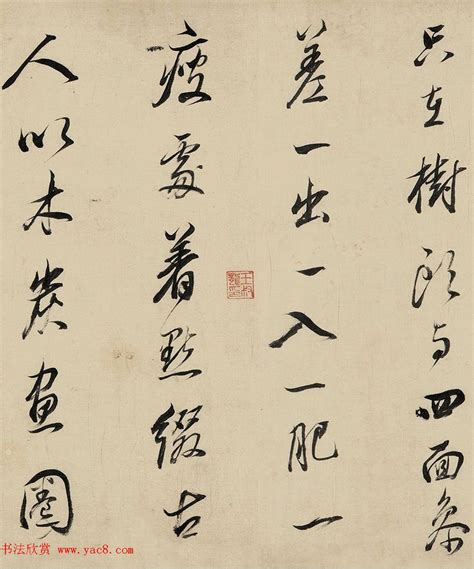 只在樹頭与四面叅
差一出一入一肥一
瘦處着點綴古
人以木炭畫圈
书法欣赏 www.yac8.com